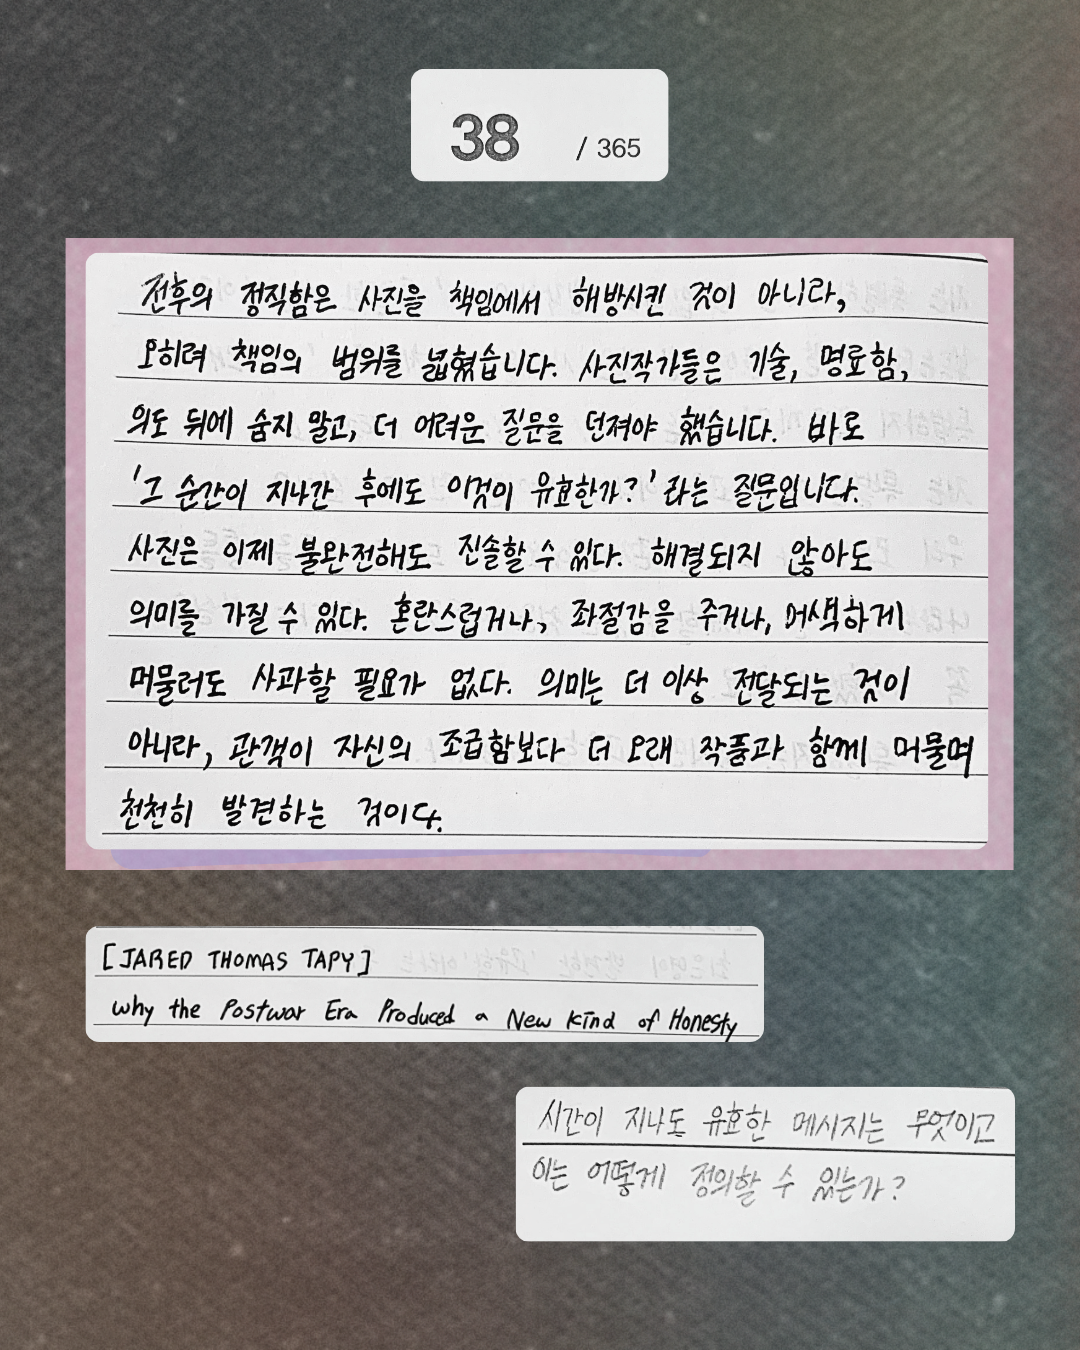 38 / 365
전후의 정직함은 사진을 책임에서 해방시킨 것이 아니라,
오히려 책임의 범위를 넓혔습니다. 사진작가들은 기술, 명료함,
의도 뒤에 숨지 말고, 더 어려운 질문을 던져야 했습니다. 바로
'그 순간이 지나간 후에도 이것이 유효한가?'라는 질문입니다.
사진은 이제 불완전해도 진솔할 수 있다. 해결되지 않아도
의미를 가질 수 있다. 혼란스럽거나, 좌절감을 주거나, 어색하게
머물러도 사과할 필요가 없다. 의미는 더 이상 전달되는 것이
아니라, 관객이 자신의 조급함보다 더 오래 작품과 함께 머물며
천천히 발견하는 것이다.
[JARED THOMAS TAPY]
why the Postwar Era Produced a New kind of Honesty
시간이 지나도 유효한 메시지는 무엇이고
이는 어떻게 정의할 수 있는가?